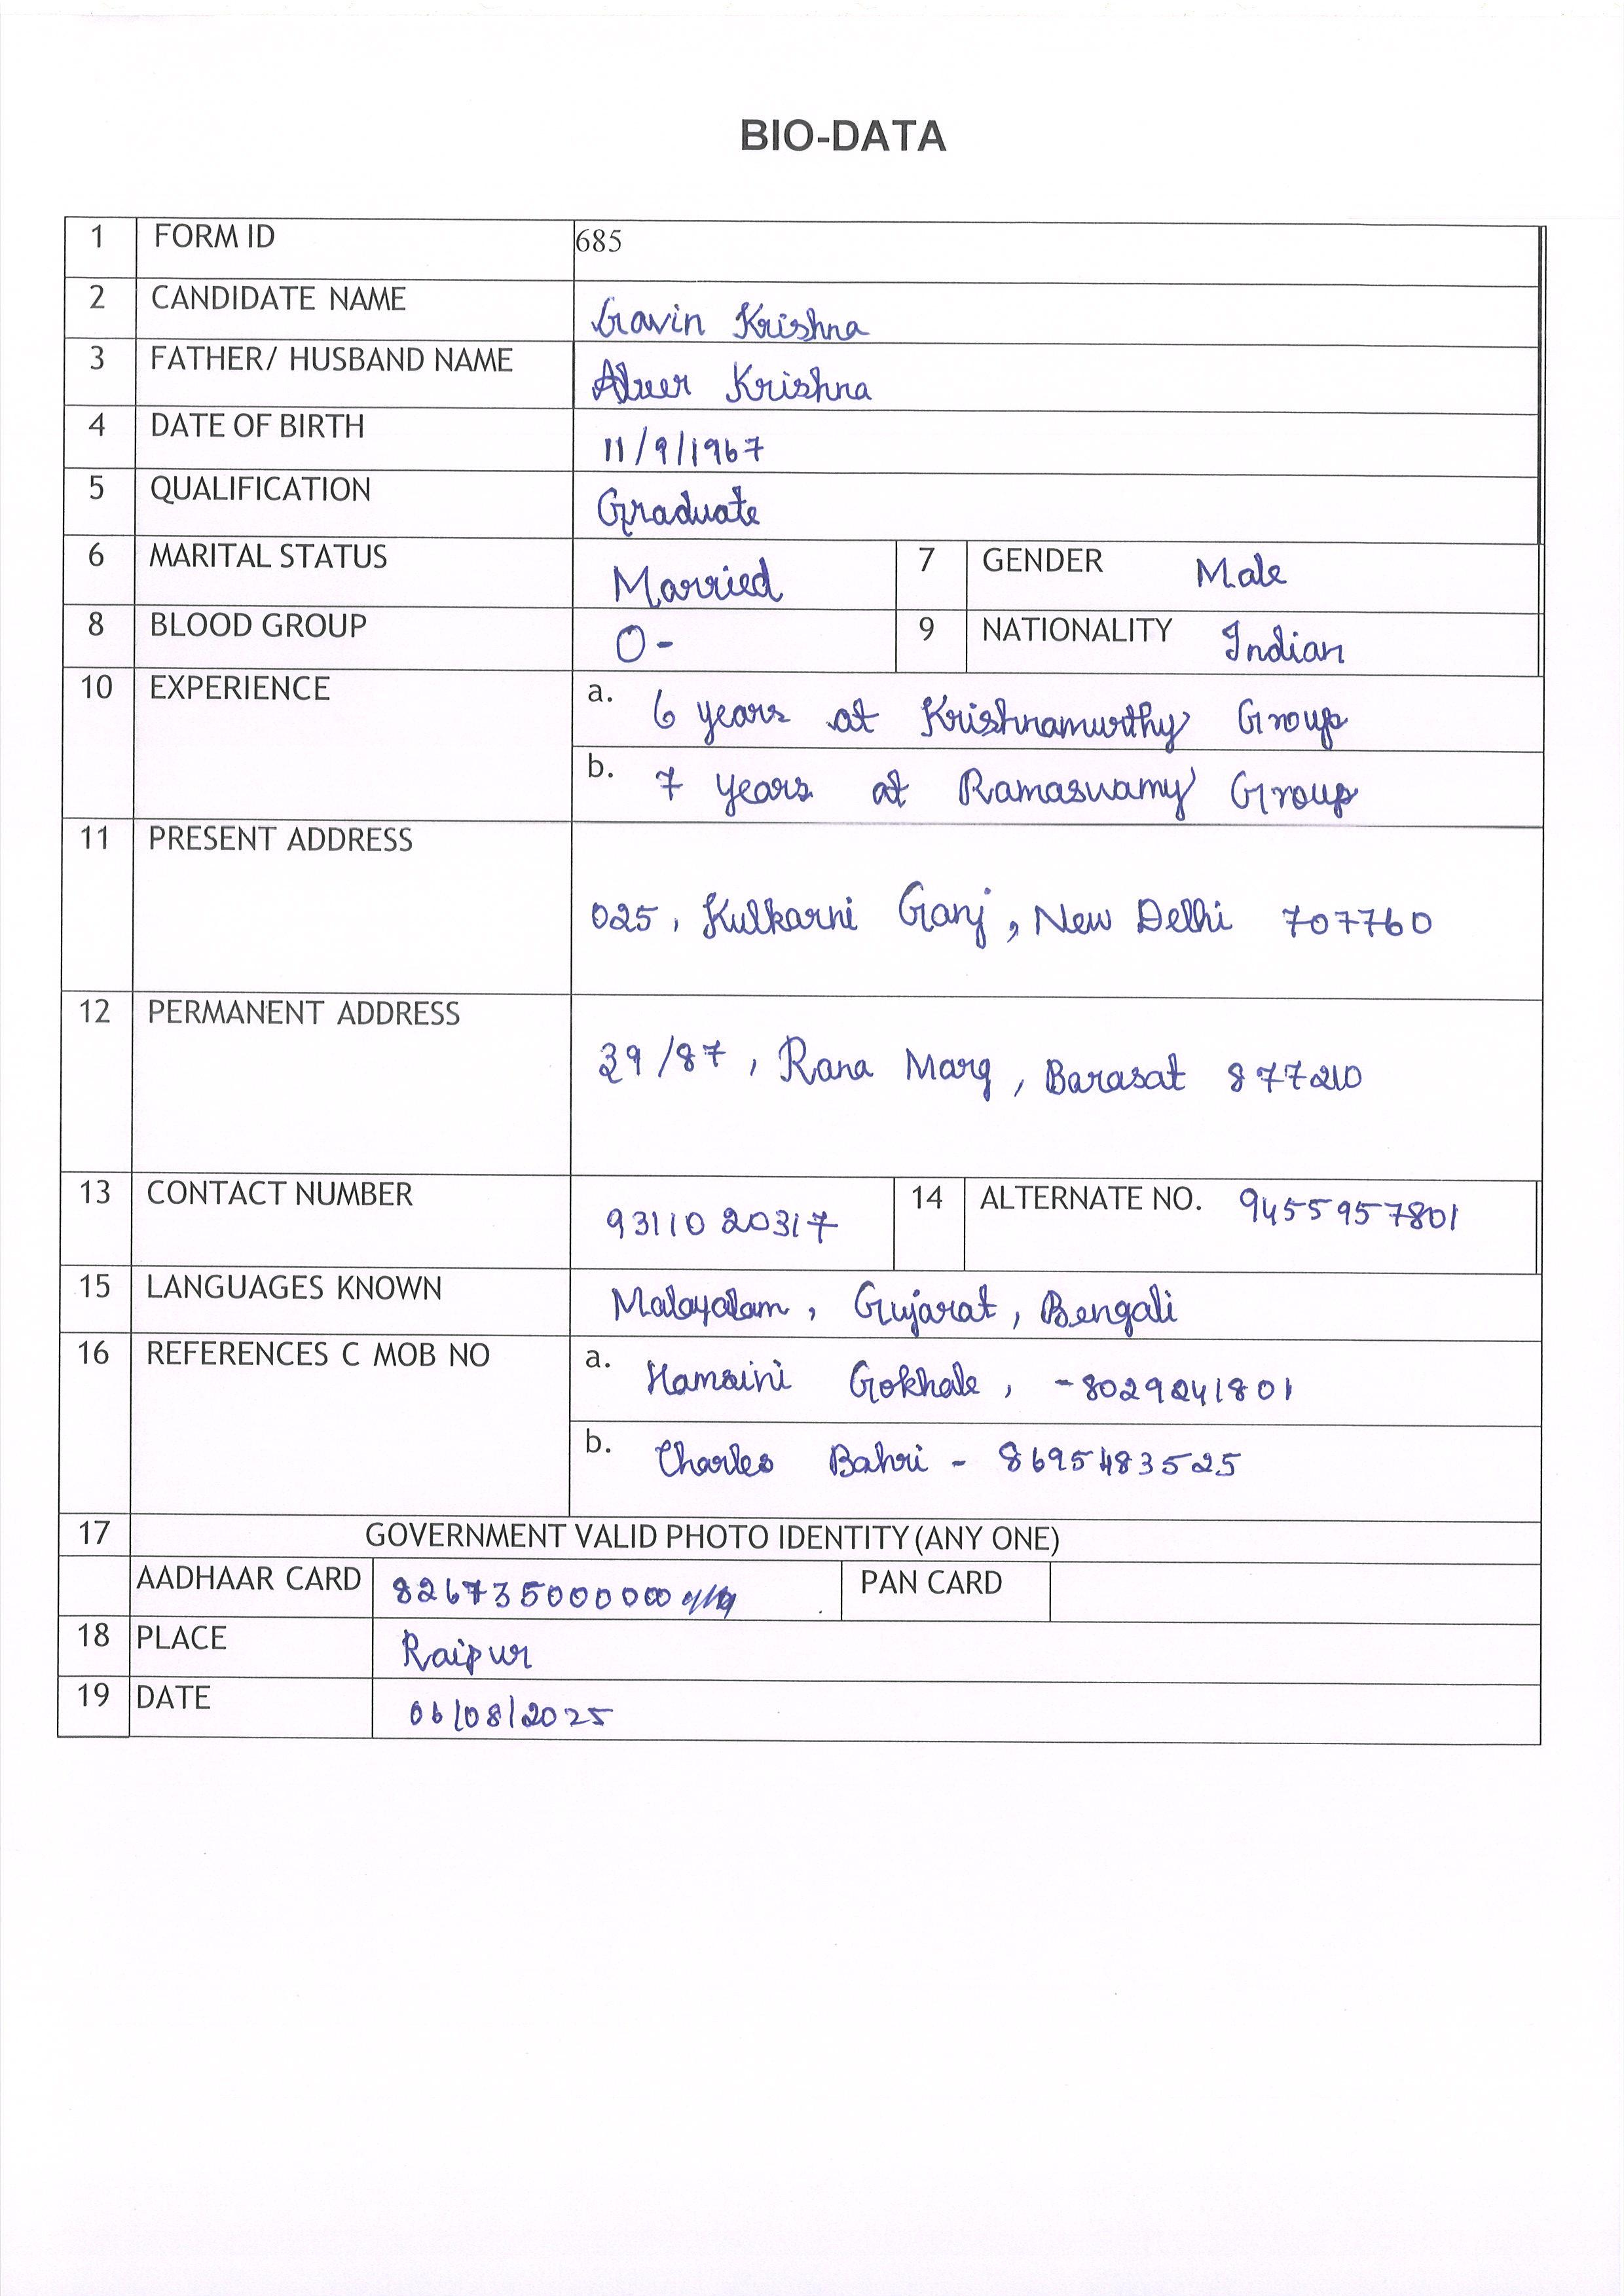 BIO-DATA
1 FORM ID 685
2 CANDIDATE NAME Gavin Krishna
3 FATHER/ HUSBAND NAME Krishna
4 DATE OF BIRTH 11/9/1967
5 QUALIFICATION Graduate
6 MARITAL STATUS Married 7 GENDER Male
8 BLOOD GROUP O- 9 NATIONALITY Indian
10 EXPERIENCE a. 6 years at Krishnamurthy Group
b. 7 years at Ramaswamy Group
11 PRESENT ADDRESS
025, Kulkarni Ganj, New Delhi 707760
12 PERMANENT ADDRESS
39/87, Rana Marg, Barasat 877210
13 CONTACT NUMBER 9311020317 14 ALTERNATE NO. 9455957801
15 LANGUAGES KNOWN Malayalam, Gujarat, Bengali
16 REFERENCES C MOB NO a. Hamsini Gokhale, -8029241801
b. Charles Bahri - 8695483525
17 GOVERNMENT VALID PHOTO IDENTITY (ANY ONE)
AADHAAR CARD 826735000000 PAN CARD
18 PLACE Raipur
19 DATE 06/08/2025